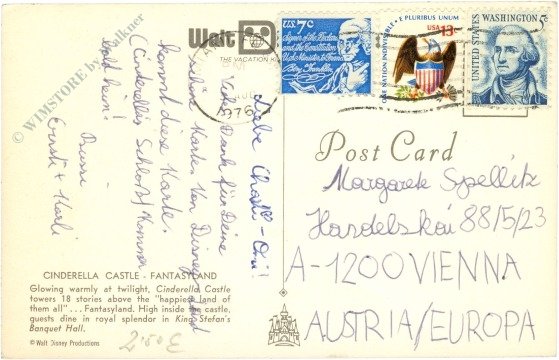 © WIMSTORE by Falkner
Wait D
THE VACATION K
1976
U.S. 7c
Signer of the Declaration
and the Constitution
Benj. Franklin
E PLURIBUS UNUM
USA 13c
ONE NATION INDIVISIBLE
WASHINGTON 5c
UNITED STATES
Post Card
Liebe
Vielen Dank für Deine
schöne Karte. Von Disneyland
kommt diese Karte.
(Cinderellas Schloß)
bald heim!
Bussi
Ernstl + Karli
Margarete Spellitz
Handelskai 88/5/23
A-1200 VIENNA
AUSTRIA/EUROPA
CINDERELLA CASTLE - FANTASYLAND
Glowing warmly at twilight, Cinderella Castle
towers 18 stories above the "happiest land of
them all" . . . Fantasyland. High inside the castle,
guests dine in royal splendor in King Stefan's
Banquet Hall.
©Walt Disney Productions